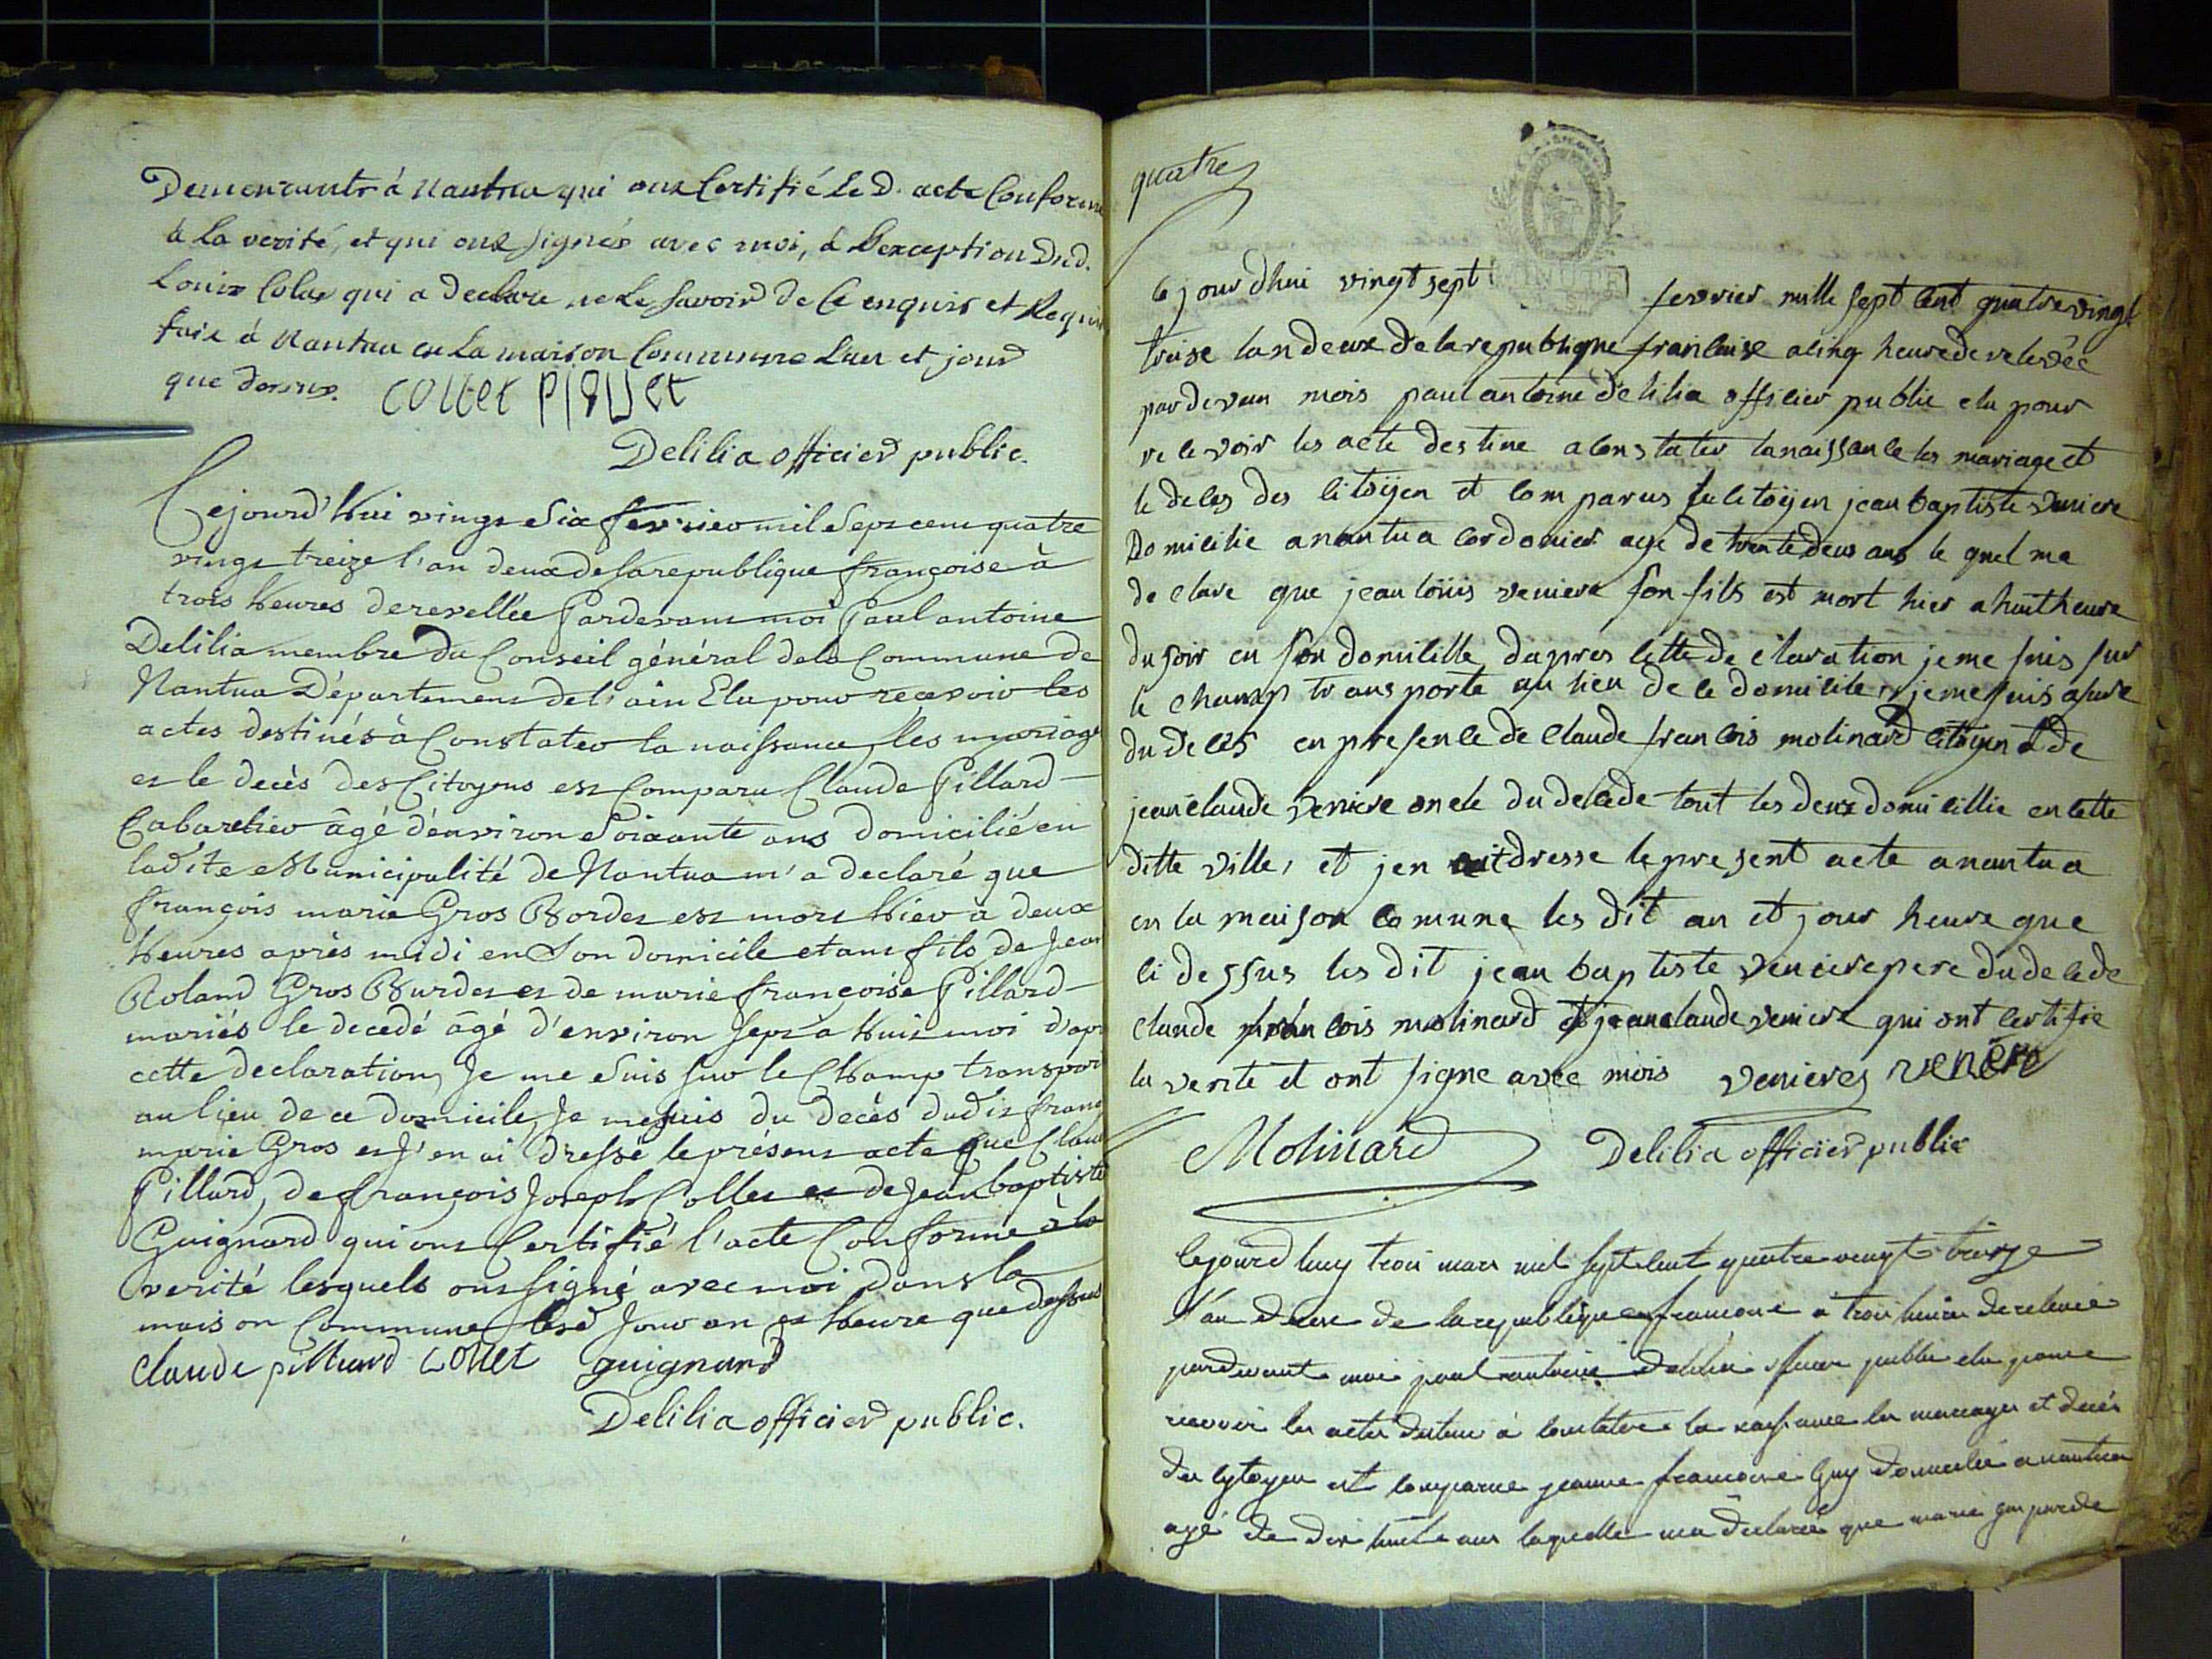 Demeurants à Nantua qui ont Certifié le D. acte Conforme
à la verité, et qui ont signés avec moi, à L'exception Dud.
Louis Colas qui a declare ne Le savoir de Ce enquis et Requis
fait à Nantua en La maison Commune L'an et jour
que dessus. COLLET PIQUET
Delilia officier public.
Cejourd'hui vingt Six fevrier mil Sept cent quatre
vingt treize l'an deux de la republique françoise à
trois heures de revellée Pardevant moi Paul antoine
Delilia membre du Conseil général de la Commune de
Nantua Département de l'ain Elu pour recevoir les
actes destinés à Constater la naissance, les mariage
et le decès des Citoyens est Comparu Claude Pillard
Cabaretier âgé d'environ Soixante ans domicilié en
ladite Municipalité de Nantua m'a declaré que
françois marie Gros Bordes est mort hier à deux
heures après midi en Son domicile etant fils de Jean
Roland Gros Burdes et de marie françoise Pillard
mariés le decedé âgé d'environ sept à huit moi d'apr
cette declaration, Je me Suis sur le Champ transpor
au lieu de ce domicile, Je me suis du decès dudit franç
marie Gros et J'en ai dressé le présent acte que Clau
Pillard, de françois Joseph Collet et de Jean baptiste
Guignard qui ont Certifié l'acte Conforme à la
verité lesquels ont signé avec moi dans la
maison Commune lesd Jour an et heure que dessus
Claude pillard COLLET guignard
Delilia officier public.
quatre
MINUTE
ce jourdhui vingt sept fevrier mille sept cent quatre vingt
treise lan deux de la republique francaise a cinq heure de relevée
par devan mois paul antoine delilia officier public elu pour
recevoir les acte destine a constater la naissance les mariage et
le deces des citoÿen et comparus le citoÿen jean baptiste veniere
Domicilie a nantua cordonier age de trente deux ans le quel ma
declare que jean loüis veniere son fils est mort hier a huit heure
du soir en son domicille dapres cette declaration je me suis sur
le champ transporte au lieu de ce domicile, je me suis asure
du deces en presence de Claude francois molinard citoyen et de
jean claude veniere oncle du decede tout les deux domicillie en cette
ditte ville, et jen ait dresse le present acte a nantua
en la maison comune les dit an et jour heure que
ci dessus les dit jean baptiste veniere pere du decede
claude francois molinard et jean claude veniere qui ont certifie
la verite et ont signe avec mois venieres veniere
Molinard Delilia officier public
Cejourd huy trois mars mil sept cent quatre vingt treize
l'an deux de la republique francoise a trois heures de relevée
pardevant moi paul antoine delilia officier public elu pour
recevoir les actes destines à constater la naissance les mariages et decés
des cytoyens est comparue jeanne francoise Guy domicilié a nantua
agé de dix huit ans laquelle m'a declaré que marie